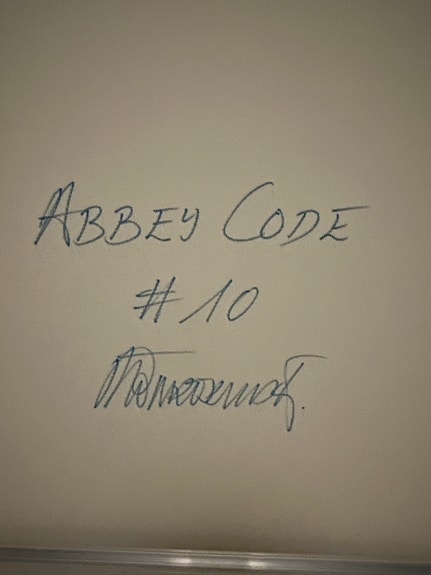 ABBEY CODE
# 10